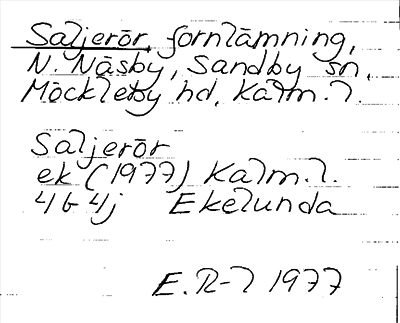 Saljerör, fornlämning,
N. Näsby, Sandby sn,
Möckleby hd, Kalm. l.
Saljerör
ek (1977) Kalm. l.
4G 4j Ekelunda
E. R-l 1977